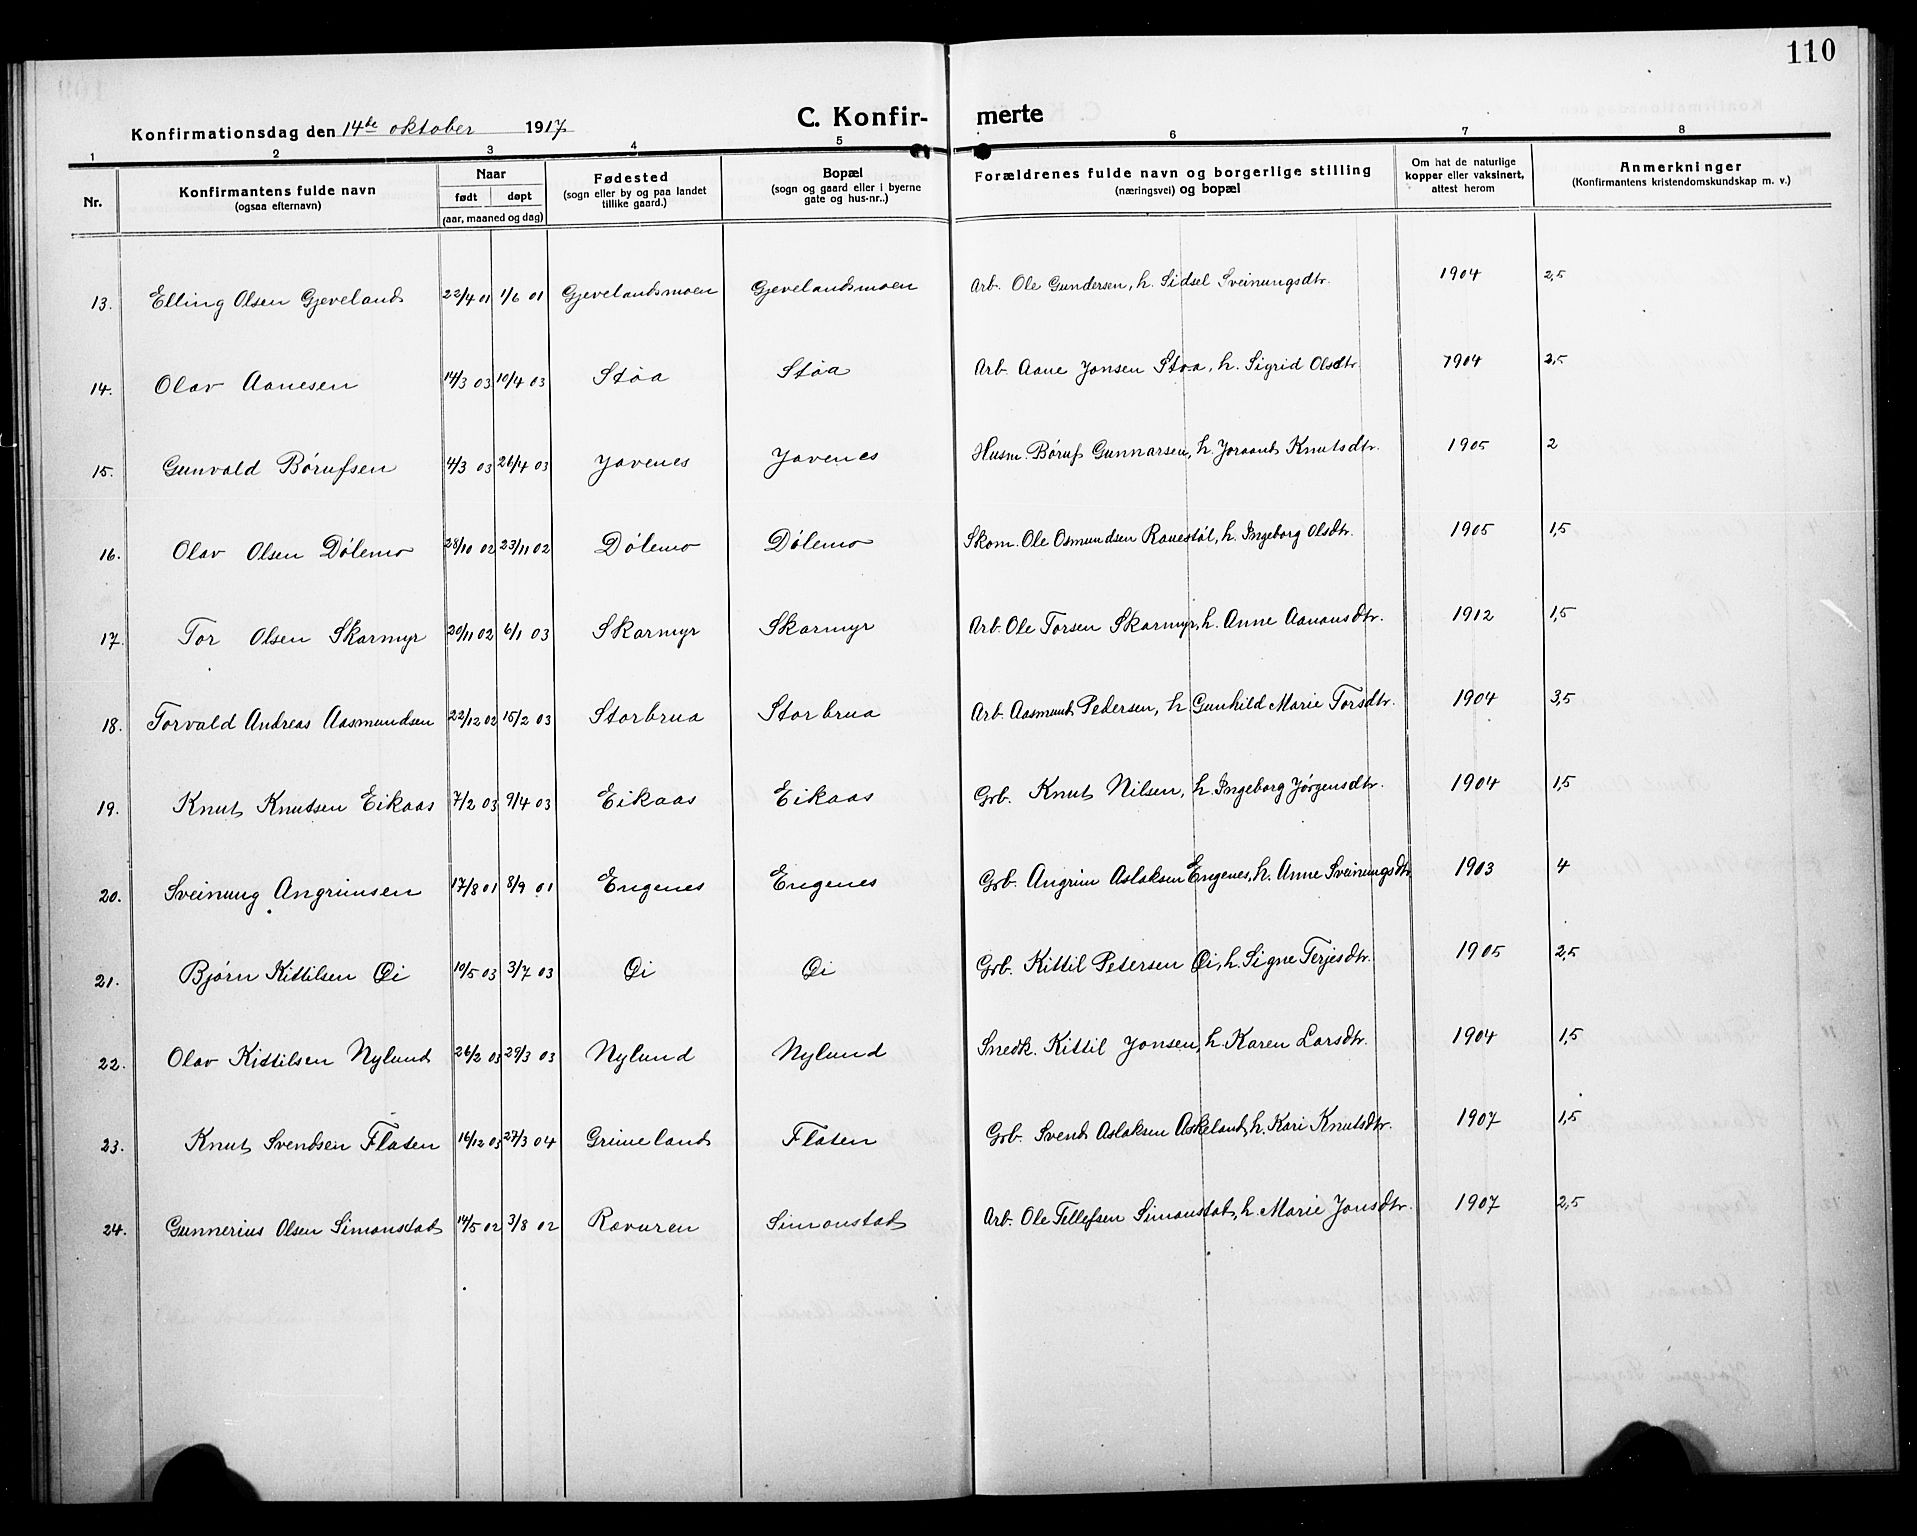 110
Konfirmationsdag den 14de oktober 1917
C. Konfir- merte
1 2 3 4 5 6 7 8
Nr. Konfirmantens fulde navn (ogsaa efternavn) Naar født døpt (aar, maaned og dag) Fødested (sogn eller by og paa landet tillike gaard.) Bopæl (sogn og gaard eller i byerne gate og hus-nr..) Forældrenes fulde navn og borgerlige stilling (næringsvei) og bopæl Om hat de naturlige kopper eller vaksinert, attest herom Anmerkninger (Konfirmantens kristendomskundskap m. v.)
13. Elling Olsen Gjeveland 22/4 01 1/6 01 Gjevelandsmoen Gjevelandsmoen Arb. Ole Gundersen, h. Sidsel Sveinungsdtr. 1904 2,5
14. Olav Aanesen 14/3 03 10/4 03 Støa Støa Arb. Aane Jonsen Støa, h. Sigrid Olsdtr. 1904 2,5
15. Gunvald Børufsen 4/3 03 26/4 03 Jovenes Jovenes Husm. Børuf Gunnarsen, h. Joraand Knutsdtr. 1905 2
16. Olav Olsen Dölemo 28/10 02 23/11 02 Dölemo Dölemo Skom. Ole Osmundsen Rauestöl, h. Ingeborg Olsdtr. 1905 1,5
17. Tor Olsen Skarmyr 20/11 02 6/1 03 Skarmyr Skarmyr Arb. Ole Torsen Skarmyr, h. Anne Aanonsdtr. 1912 1,5
18. Torvald Andreas Aasmundsen 22/12 02 15/2 03 Storbrua Storbrua Arb. Aasmund Pedersen, h Gunhild Marie Torsdtr. 1904 3,5
19. Knut Knutsen Eikaas 7/2 03 9/4 03 Eikaas Eikaas Grb. Knut Nilsen, h. Ingeborg Jørgensdtr. 1904 1,5
20. Sveinung Angrimsen 17/8 01 8/9 01 Engenes Engenes Grb. Angrim Aslaksen Engenes, h. Anne Sveinungsdtr 1903 4
21. Bjørn Kittilsen Øi 10/5 03 3/7 03 Øi Øi Grb. Kittil Petersen Øi, h. Signe Terjesdtr. 1905 2,5
22. Olav Kittilsen Nylund 26/2 03 29/3 03 Nylund Nylund Snedk. Kittil Jonsen, h. Karen Larsdtr. 1904 1,5
23. Knut Svendsen Flaten 16/12 03 27/3 04 Grimeland Flaten Grb. Svend Aslaksen Askeland, h. Kari Knutsdtr. 1907 1,5
24. Gunnerius Olsen Simonstad 14/5 02 3/8 02 Rovuren Simonstad Arb. Ole Tellefsen Simonstad, h. Marie Jonsdtr. 1907 2,5